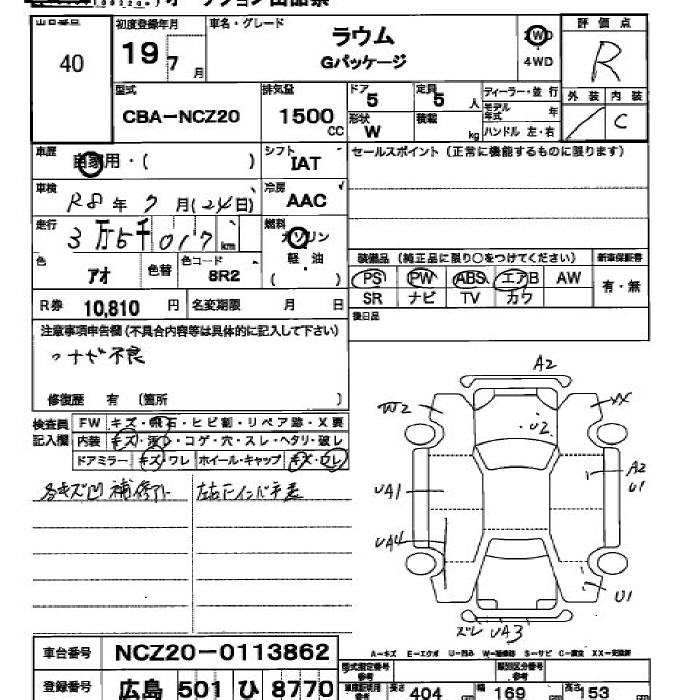 オークション出品票
出品番号 40
初度登録年月 19 7 月
車名・グレード ラウム Gパッケージ
2WD 4WD
評価点 R
外装 内装 C
型式 CBA-NCZ20
排気量 1500 CC
ドア 5 定員 5 人
形状 W 積載 kg
ディーラー・並行
モデル年式 年
ハンドル 左・右
車歴 自家用・( )
シフト IAT
セールスポイント(正常に機能するものに限ります)
車検 R8 年 7 月(24日)
冷房 AAC
走行 3万5千017 km
燃料 ガソリン 軽・油 ( )
色 アオ 色替 色コード 8R2
装備品(純正品に限り○をつけてください) 新車保証書
PS PW ABS エアB AW 有・無
SR ナビ TV カワ
R券 10,810 円 名変期限 月 日
後日品
注意事項申告欄(不具合内容等は具体的に記入して下さい)
ナビ不良
修復歴 有 (箇所 )
検査員記入欄
FW キズ・飛石・ヒビ割・リペア跡・X要
内装 キズ・汚レ・コゲ・穴・スレ・ヘタリ・破レ
ドアミラー キズ・ワレ ホイール・キャップ キズ・ワレ
各キズ凹 補修アト 左右下インパキ差
A2
W2
XX
U2
A2
U1
UA1
UA4
U1
ズレ UA3
車台番号 NCZ20-0113862
A-キズ E-エクボ U-凹み W-補修跡 S-サビ C-腐食 XX-交換済
登録番号 広島 501 ひ 8770
型式指定番号 類別区分番号
長さ 404 幅 169 高さ 153